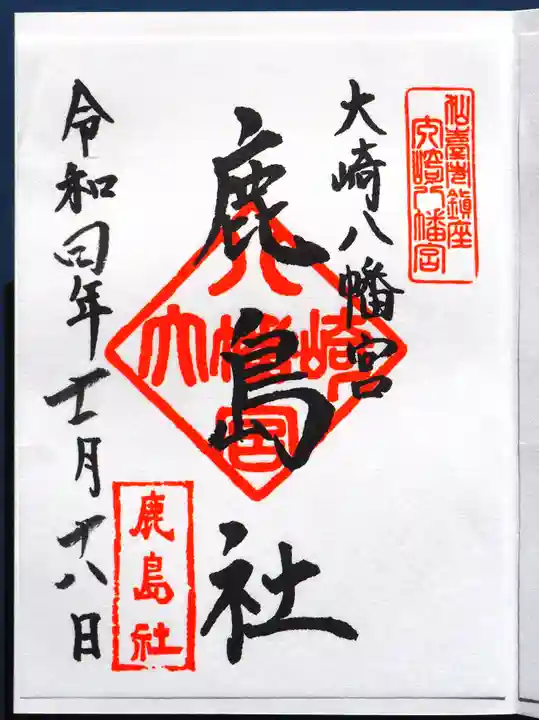 仙臺市鎮座
大崎八幡宮
大崎八幡宮
鹿島社
八
大幡崎
宮
鹿島社
令和四年十一月十八日